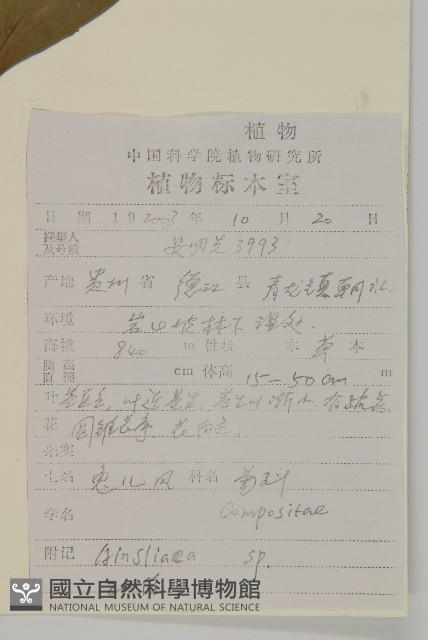 植物
中国科学院植物研究所
植物标本室
日期 19 2003 年 10 月 20 日
採集人及号数 安明先 3993
产地 贵州 省 德江 县 青龙镇
环境 岩山坡林下湿处.
海拔 840 m 性状 木 草 本
胸高直径 cm 体高 15—50cm m
叶 基
花 圆锥花序 花白色.
果实
土名 兔儿风 科名 菊科
学名 Compositae
附记 Ainsliaea sp.
國立自然科學博物館
NATIONAL MUSEUM OF NATURAL SCIENCE